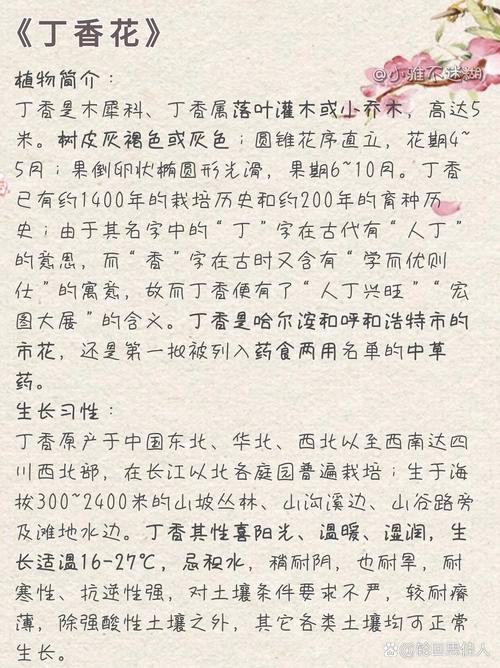 《丁香花》
@小雅不迷糊
植物简介：
丁香是木犀科、丁香属落叶灌木或小乔木，高达5
米。树皮灰褐色或灰色；圆锥花序直立，花期4~
5月；果倒卵状椭圆形光滑，果期6~10月。丁香
已有约1400年的栽培历史和约200年的育种历
史；由于其名字中的“丁”字在古代有“人丁”
的意思，而“香”字在古时又含有“学而优则
仕”的寓意，故而丁香便有了“人丁兴旺”“宏
图大展”的含义。丁香是哈尔滨和呼和浩特市的
市花，还是第一批被列入药食两用名单的中草
药。
生长习性：
丁香原产于中国东北、华北、西北以至西南达四
川西北部，在长江以北各庭园普遍栽培；生于海
拔300~2400米的山坡丛林、山沟溪边、山谷路旁
及滩地水边。丁香其性喜阳光、温暖、湿润，生
长适温16-27℃，忌积水，稍耐阴，也耐旱，耐
寒性、抗逆性强，对土壤条件要求不严，较耐瘠
薄，除强酸性土壤之外，其它各类土壤均可正常
生长。